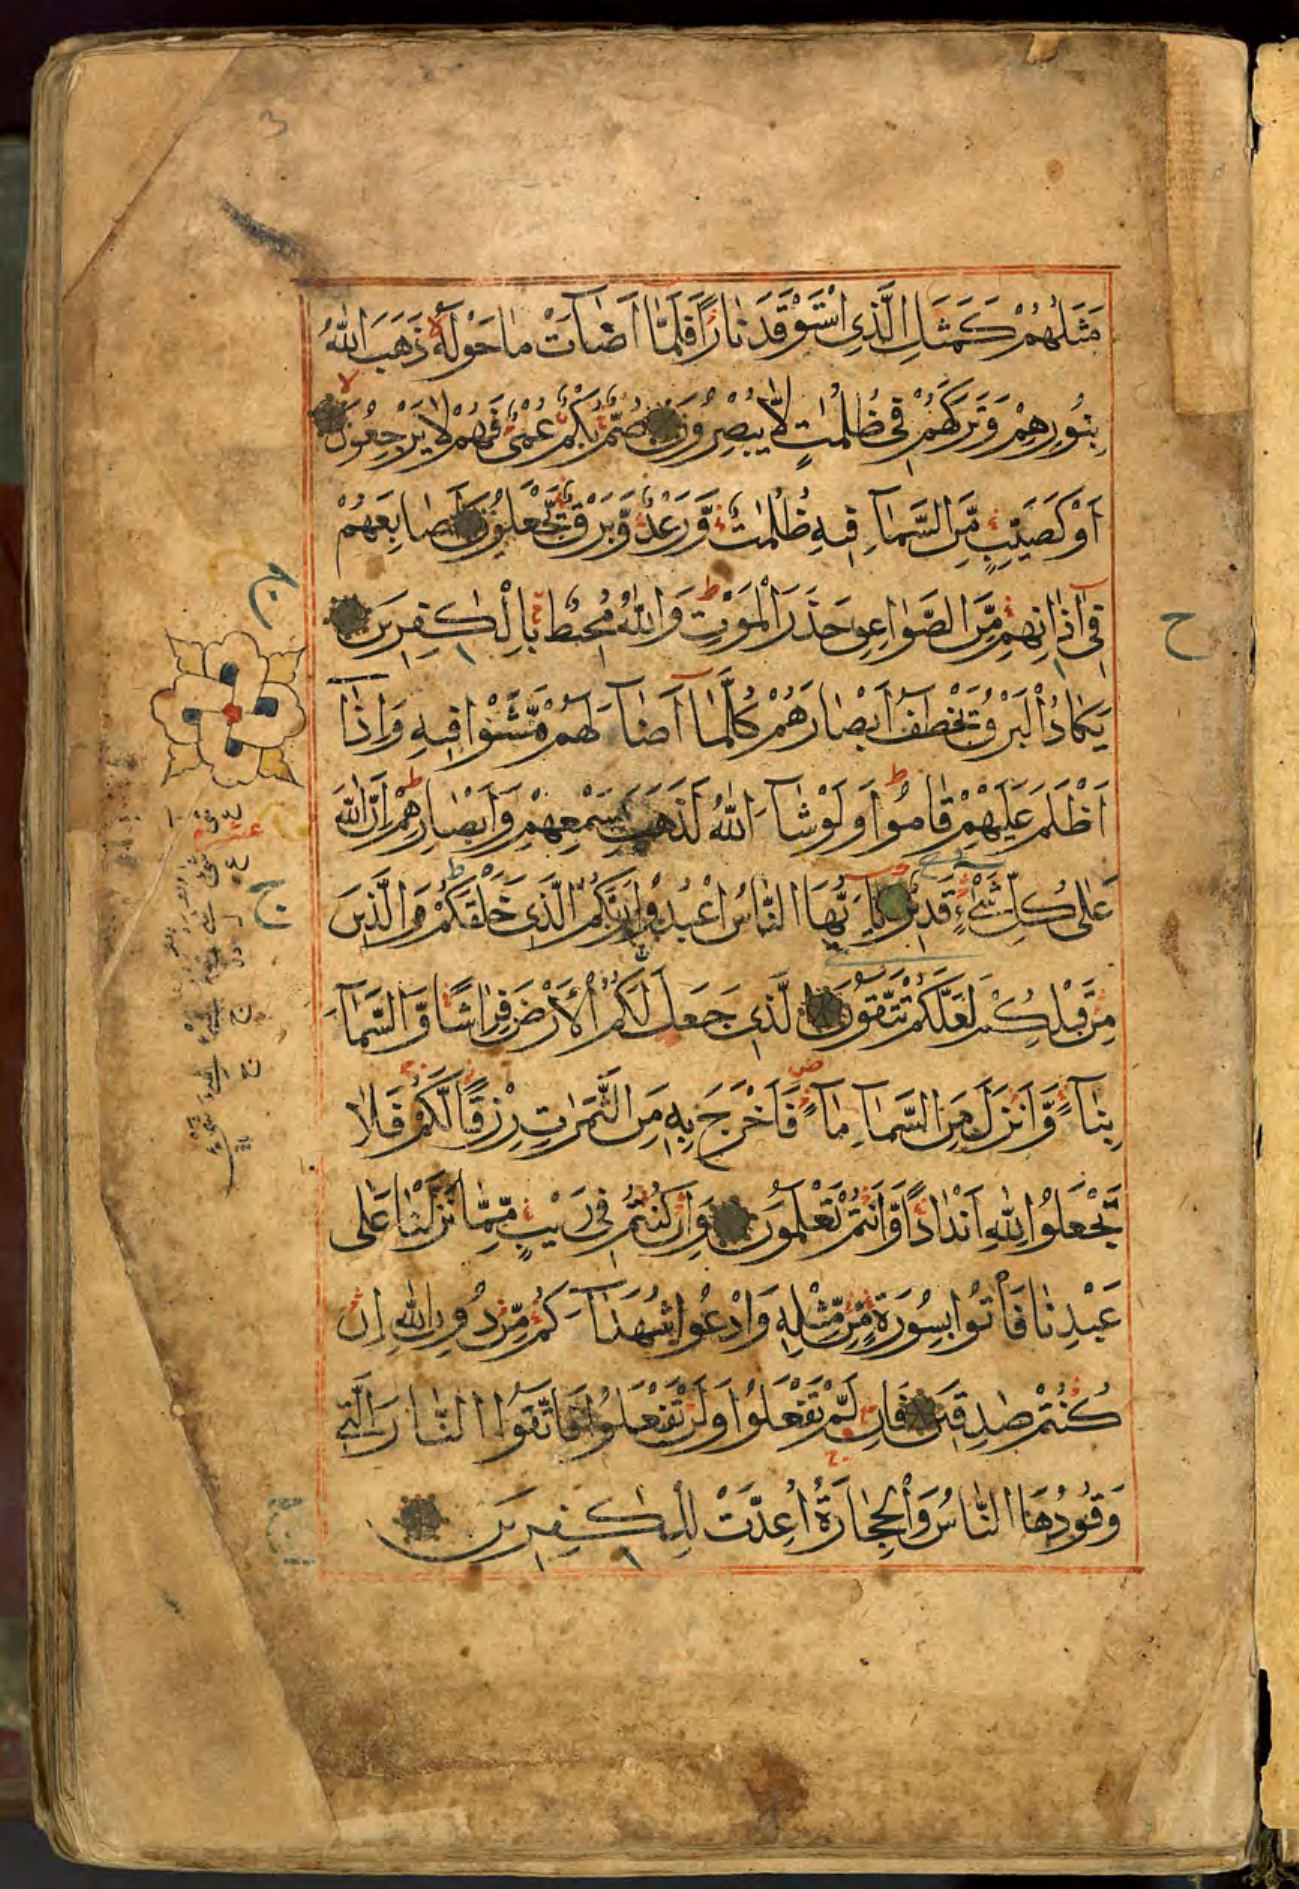 مَثَلُهُمْ كَمَثَلِ الَّذِى اسْتَوْقَدَ نَارًا فَلَمَّا اَضَاَتْ مَا حَوْلَهُ ذَهَبَ اللّٰهُ
بِنُورِهِمْ وَتَرَكَهُمْ فِى ظُلُمٰتٍ لَّا يُبْصِرُونَ صُمٌّ بُكْمٌ عُمْىٌ فَهُمْ لَا يَرْجِعُونَ
اَوْ كَصَيِّبٍ مِّنَ السَّمَآءِ فِيهِ ظُلُمٰتٌ وَّرَعْدٌ وَّبَرْقٌ يَّجْعَلُونَ اَصَابِعَهُمْ
فِىٓ اٰذَانِهِمْ مِّنَ الصَّوَاعِقِ حَذَرَ الْمَوْتِ وَاللّٰهُ مُحِيطٌ بِالْكٰفِرِينَ
يَكَادُ الْبَرْقُ يَخْطَفُ اَبْصَارَهُمْ كُلَّمَآ اَضَآءَ لَهُمْ مَّشَوْا فِيهِ وَاِذَآ
اَظْلَمَ عَلَيْهِمْ قَامُوا وَلَوْ شَآءَ اللّٰهُ لَذَهَبَ بِسَمْعِهِمْ وَاَبْصَارِهِمْ اِنَّ اللّٰهَ
عَلٰى كُلِّ شَىْءٍ قَدِيرٌ يَآ اَيُّهَا النَّاسُ اعْبُدُوا رَبَّكُمُ الَّذِى خَلَقَكُمْ وَالَّذِينَ
مِنْ قَبْلِكُمْ لَعَلَّكُمْ تَتَّقُونَ الَّذِى جَعَلَ لَكُمُ الْاَرْضَ فِرَاشًا وَّالسَّمَآءَ
بِنَآءً وَّاَنْزَلَ مِنَ السَّمَآءِ مَآءً فَاَخْرَجَ بِهِ مِنَ الثَّمَرٰتِ رِزْقًا لَّكُمْ فَلَا
تَجْعَلُوا لِلّٰهِ اَنْدَادًا وَّاَنْتُمْ تَعْلَمُونَ وَاِنْ كُنْتُمْ فِى رَيْبٍ مِّمَّا نَزَّلْنَا عَلٰى
عَبْدِنَا فَاْتُوا بِسُورَةٍ مِّنْ مِّثْلِهِ وَادْعُوا شُهَدَآءَكُمْ مِّنْ دُونِ اللّٰهِ اِنْ
كُنْتُمْ صٰدِقِينَ فَاِنْ لَّمْ تَفْعَلُوا وَلَنْ تَفْعَلُوا فَاتَّقُوا النَّارَ الَّتِى
وَقُودُهَا النَّاسُ وَالْحِجَارَةُ اُعِدَّتْ لِلْكٰفِرِينَ